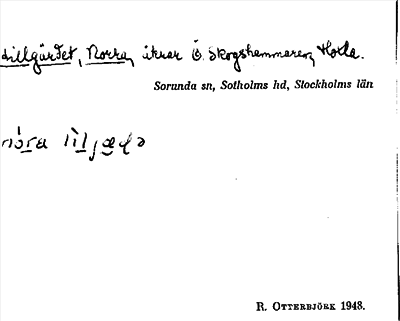 Lillgärdet, Norra, åkrar Ö. Skogshammaren,Holla.
Sorunda sn, Sotholms hd, Stockholms län
R. Otterbjörk 1948.